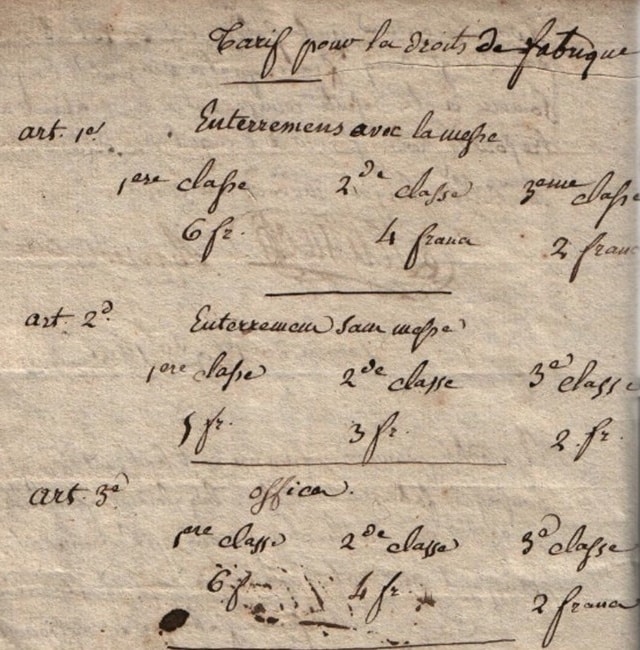 Tarif pour la droits de fabrique
art. 1er Enterremens avec la messe
1ere classe 2de classe 3eme classe
6 fr. 4 francs 2 franc
art. 2d Enterremens sans messe
1ere classe 2de classe 3e classe
5 fr. 3 fr. 2 fr.
art. 3e offices.
1ere classe 2de classe 3e classe
6 f 4 fr. 2 francs